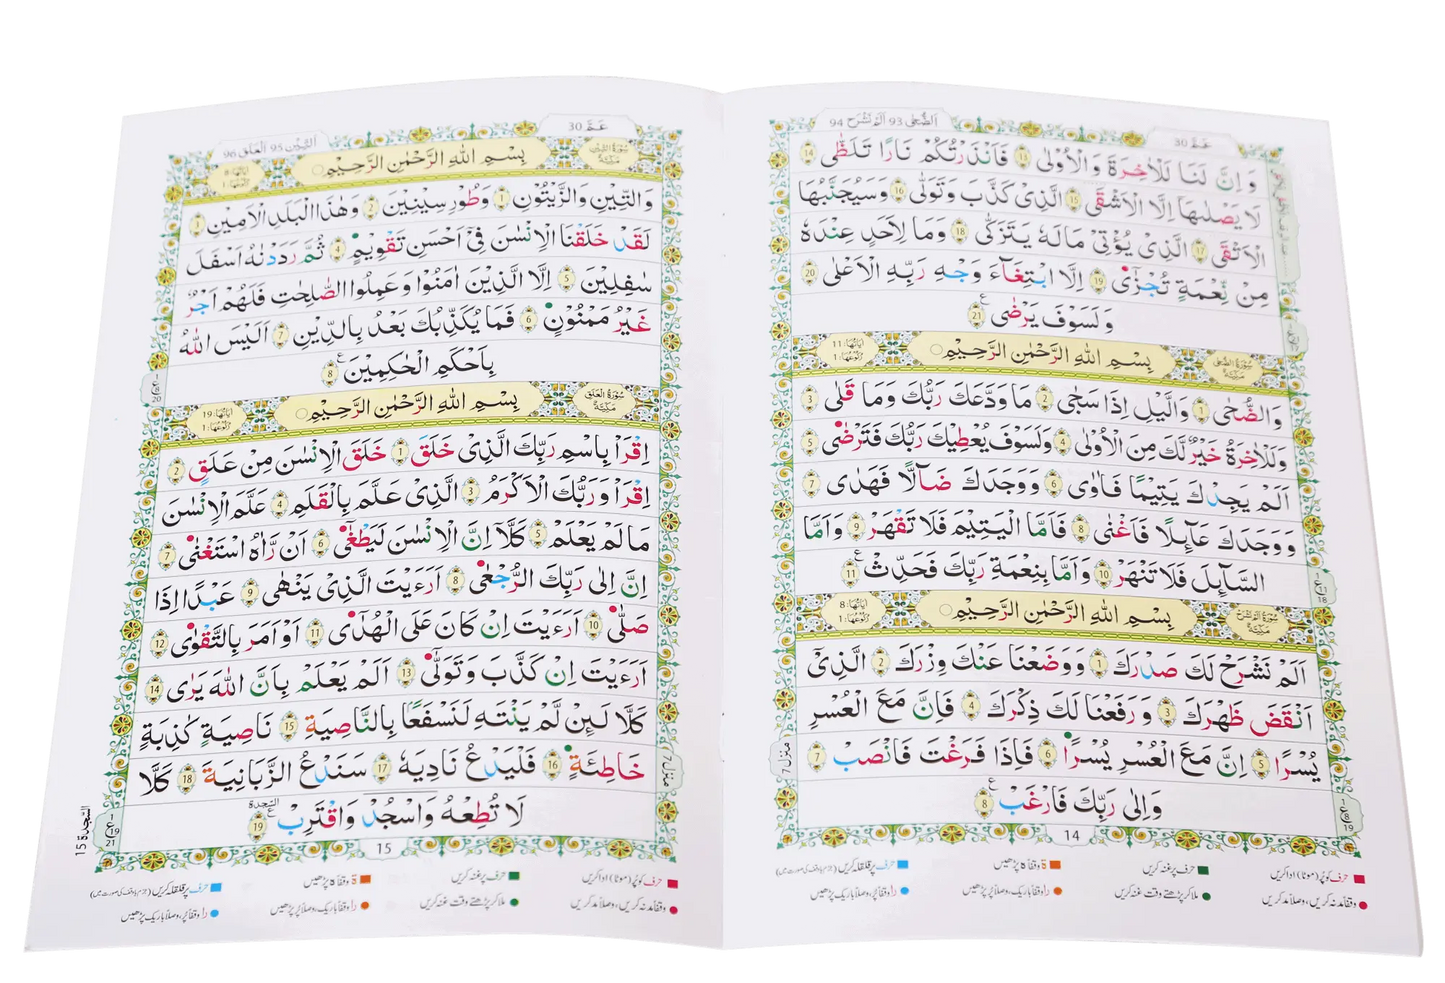 عَمَّ 30
اَلضُّحٰى 93 اَلَمْ نَشْرَحْ 94
وَ اِنَّ لَنَا لَلْاٰخِرَةَ وَ الْاُوْلٰى 13 فَاَنْذَرْتُكُمْ نَارًا تَلَظّٰى 14
لَا يَصْلٰىهَاۤ اِلَّا الْاَشْقَى 15 الَّذِيْ كَذَّبَ وَ تَوَلّٰى 16 وَ سَيُجَنَّبُهَا
الْاَتْقَى 17 الَّذِيْ يُؤْتِيْ مَالَهٗ يَتَزَكّٰى 18 وَ مَا لِاَحَدٍ عِنْدَهٗ
مِنْ نِّعْمَةٍ تُجْزٰۤى 19 اِلَّا ابْتِغَآءَ وَجْهِ رَبِّهِ الْاَعْلٰى 20
وَ لَسَوْفَ يَرْضٰى 21 ع
سُوْرَةُ الضُّحٰى مَكِّيَّةٌ
بِسْمِ اللّٰهِ الرَّحْمٰنِ الرَّحِيْمِ
اٰيَاتُهَا: 11 رُكُوْعُهَا: 1
وَ الضُّحٰى 1 وَ الَّيْلِ اِذَا سَجٰى 2 مَا وَدَّعَكَ رَبُّكَ وَ مَا قَلٰى 3
وَ لَلْاٰخِرَةُ خَيْرٌ لَّكَ مِنَ الْاُوْلٰى 4 وَ لَسَوْفَ يُعْطِيْكَ رَبُّكَ فَتَرْضٰى 5
اَلَمْ يَجِدْكَ يَتِيْمًا فَاٰوٰى 6 وَ وَجَدَكَ ضَآلًّا فَهَدٰى 7
وَ وَجَدَكَ عَآئِلًا فَاَغْنٰى 8 فَاَمَّا الْيَتِيْمَ فَلَا تَقْهَرْ 9 وَ اَمَّا
السَّآئِلَ فَلَا تَنْهَرْ 10 وَ اَمَّا بِنِعْمَةِ رَبِّكَ فَحَدِّثْ 11 ع
سُوْرَةُ اَلَمْ نَشْرَحْ مَكِّيَّةٌ
بِسْمِ اللّٰهِ الرَّحْمٰنِ الرَّحِيْمِ
اٰيَاتُهَا: 8 رُكُوْعُهَا: 1
اَلَمْ نَشْرَحْ لَكَ صَدْرَكَ 1 وَ وَضَعْنَا عَنْكَ وِزْرَكَ 2 الَّذِيْۤ
اَنْقَضَ ظَهْرَكَ 3 وَ رَفَعْنَا لَكَ ذِكْرَكَ 4 فَاِنَّ مَعَ الْعُسْرِ
يُسْرًا 5 اِنَّ مَعَ الْعُسْرِ يُسْرًا 6 فَاِذَا فَرَغْتَ فَانْصَبْ 7
وَ اِلٰى رَبِّكَ فَارْغَبْ 8 ع
منزل 7
14
حرف کو پُر (موٹا) ادا کریں
حرف پر غنہ کریں
ۃ وقفاً ہ پڑھیں
حرف پر قلقلہ کریں (جزم یا وقف کی صورت میں)
وقفاً مد نہ کریں، وصلاً مد کریں
ملا کر پڑھتے وقت غنہ کریں
را وقفاً باریک، وصلاً پُر پڑھیں
را وقفاً پُر، وصلاً باریک پڑھیں
عَمَّ 30
اَلتِّيْن 95 اَلْعَلَق 96
سُوْرَةُ التِّيْنِ مَكِّيَّةٌ
بِسْمِ اللّٰهِ الرَّحْمٰنِ الرَّحِيْمِ
اٰيَاتُهَا: 8 رُكُوْعُهَا: 1
وَ التِّيْنِ وَ الزَّيْتُوْنِ 1 وَ طُوْرِ سِيْنِيْنَ 2 وَ هٰذَا الْبَلَدِ الْاَمِيْنِ 3
لَقَدْ خَلَقْنَا الْاِنْسٰنَ فِيْۤ اَحْسَنِ تَقْوِيْمٍ 4 ثُمَّ رَدَدْنٰهُ اَسْفَلَ
سٰفِلِيْنَ 5 اِلَّا الَّذِيْنَ اٰمَنُوْا وَ عَمِلُوا الصّٰلِحٰتِ فَلَهُمْ اَجْرٌ
غَيْرُ مَمْنُوْنٍ 6 فَمَا يُكَذِّبُكَ بَعْدُ بِالدِّيْنِ 7 اَلَيْسَ اللّٰهُ
بِاَحْكَمِ الْحٰكِمِيْنَ 8 ع
سُوْرَةُ الْعَلَقِ مَكِّيَّةٌ
بِسْمِ اللّٰهِ الرَّحْمٰنِ الرَّحِيْمِ
اٰيَاتُهَا: 19 رُكُوْعُهَا: 1
اِقْرَاْ بِاسْمِ رَبِّكَ الَّذِيْ خَلَقَ 1 خَلَقَ الْاِنْسٰنَ مِنْ عَلَقٍ 2
اِقْرَاْ وَ رَبُّكَ الْاَكْرَمُ 3 الَّذِيْ عَلَّمَ بِالْقَلَمِ 4 عَلَّمَ الْاِنْسٰنَ
مَا لَمْ يَعْلَمْ 5 كَلَّاۤ اِنَّ الْاِنْسٰنَ لَيَطْغٰۤى 6 اَنْ رَّاٰهُ اسْتَغْنٰى 7
اِنَّ اِلٰى رَبِّكَ الرُّجْعٰى 8 اَرَءَيْتَ الَّذِيْ يَنْهٰى 9 عَبْدًا اِذَا
صَلّٰى 10 اَرَءَيْتَ اِنْ كَانَ عَلَى الْهُدٰۤى 11 اَوْ اَمَرَ بِالتَّقْوٰى 12
اَرَءَيْتَ اِنْ كَذَّبَ وَ تَوَلّٰى 13 اَلَمْ يَعْلَمْ بِاَنَّ اللّٰهَ يَرٰى 14
كَلَّا لَئِنْ لَّمْ يَنْتَهِ لَنَسْفَعًۢا بِالنَّاصِيَةِ 15 نَاصِيَةٍ كَاذِبَةٍ
خَاطِئَةٍ 16 فَلْيَدْعُ نَادِيَهٗ 17 سَنَدْعُ الزَّبَانِيَةَ 18 كَلَّا
لَا تُطِعْهُ وَ اسْجُدْ وَ اقْتَرِبْ 19 ع السجدة
السجدة 15
منزل 7
15
حرف کو پُر (موٹا) ادا کریں
حرف پر غنہ کریں
ۃ وقفاً ہ پڑھیں
حرف پر قلقلہ کریں (جزم یا وقف کی صورت میں)
وقفاً مد نہ کریں، وصلاً مد کریں
ملا کر پڑھتے وقت غنہ کریں
را وقفاً باریک، وصلاً پُر پڑھیں
را وقفاً پُر، وصلاً باریک پڑھیں